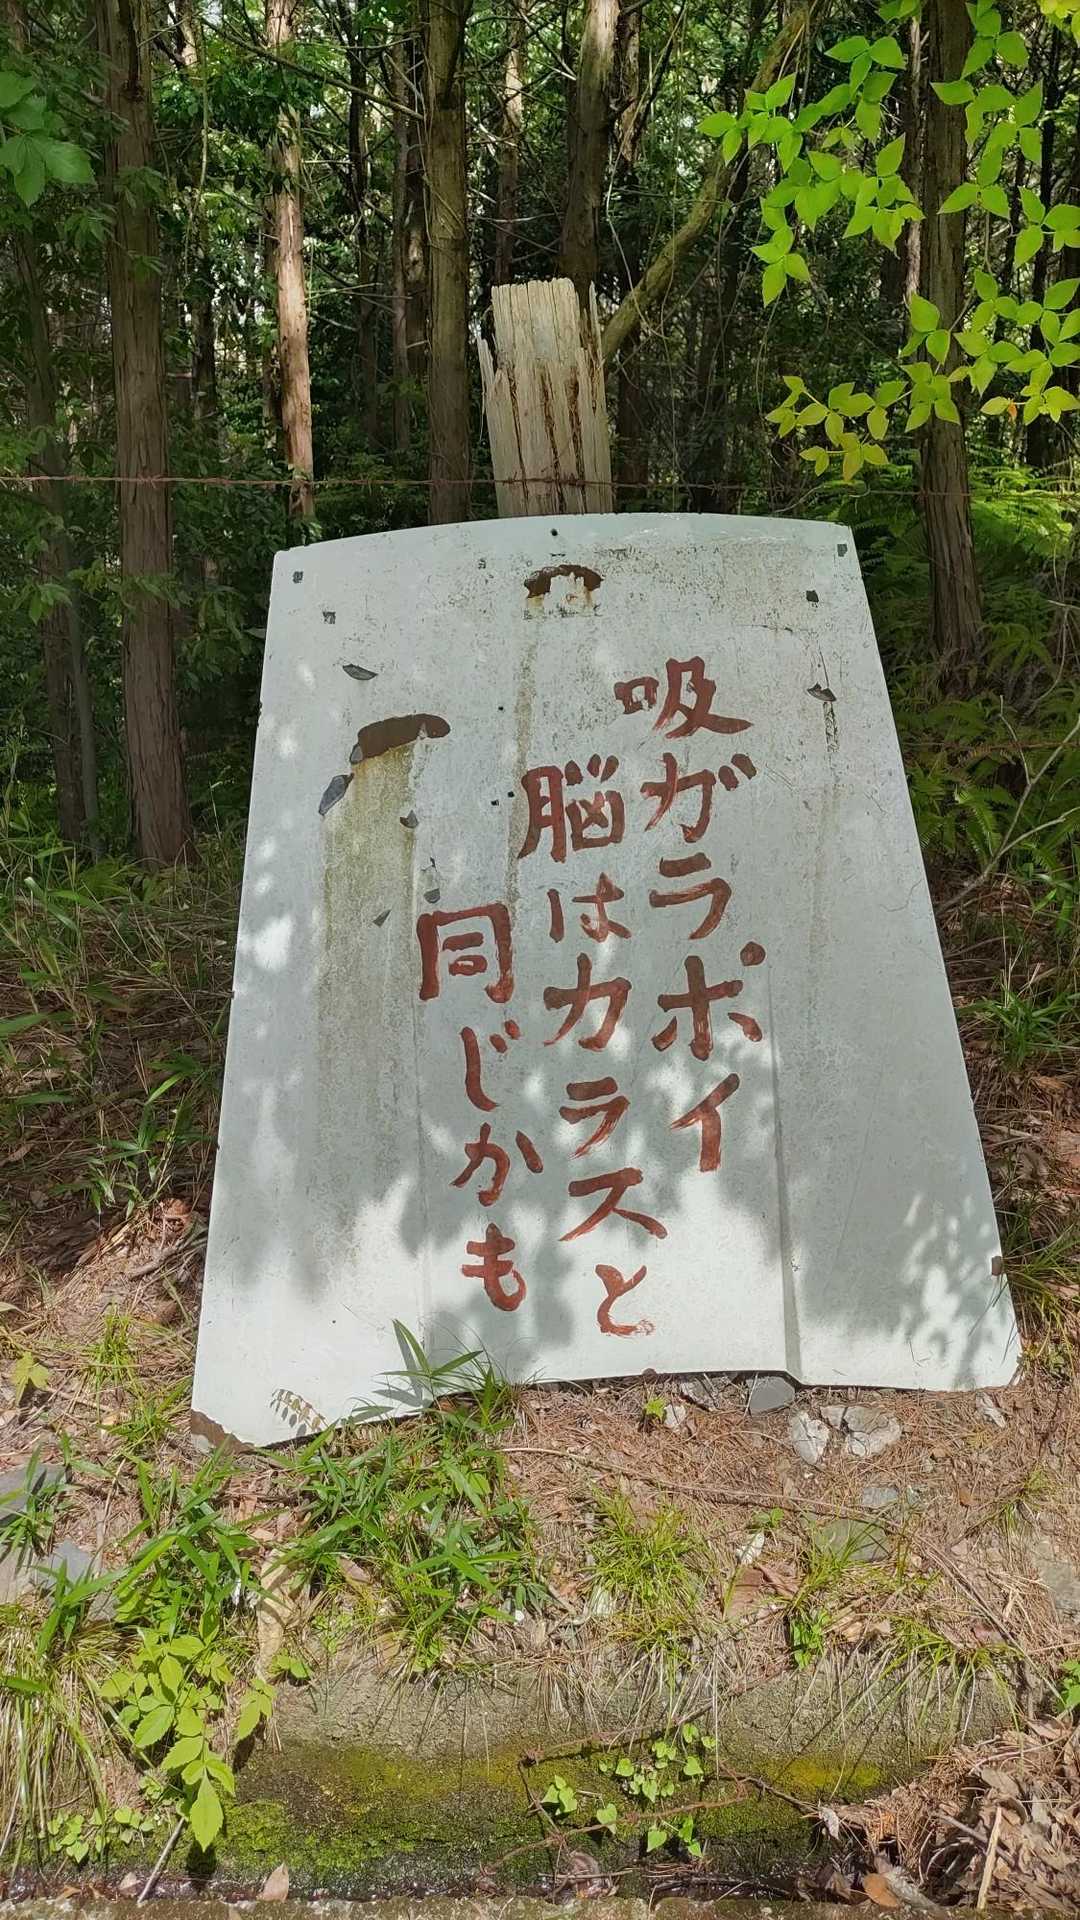 吸ガラポイ
脳はカラスと
同じかも